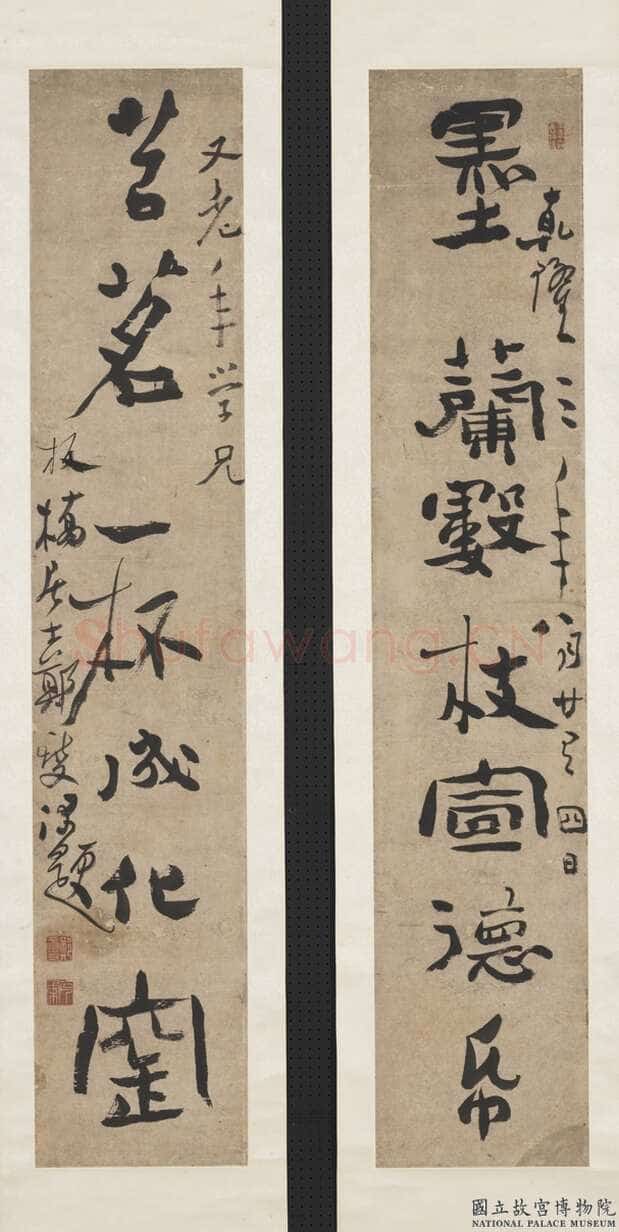 墨蘭數枝宣德帋
乾隆年八月廿四日
苦茗一杯成化窯
又老年學兄
板橋居士鄭燮題
Shufawang.CN
國立故宮博物院
NATIONAL PALACE MUSEUM